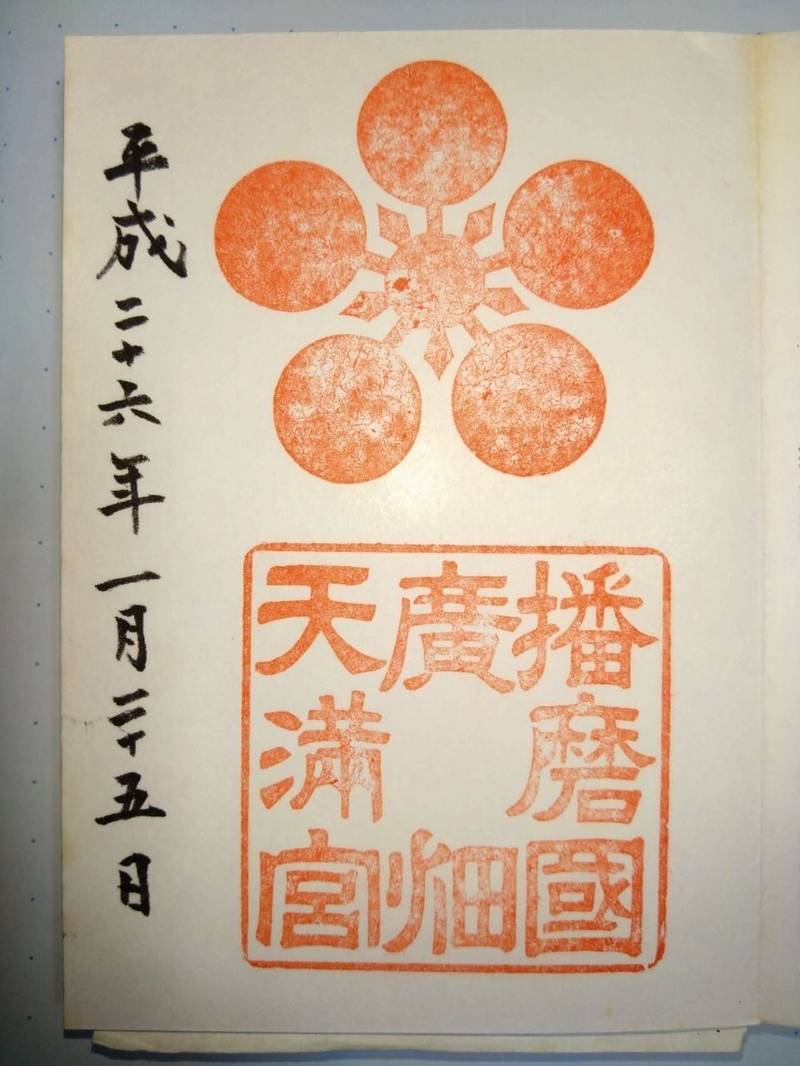 播磨國
廣畑
天満宮
平成二十六年一月二十五日